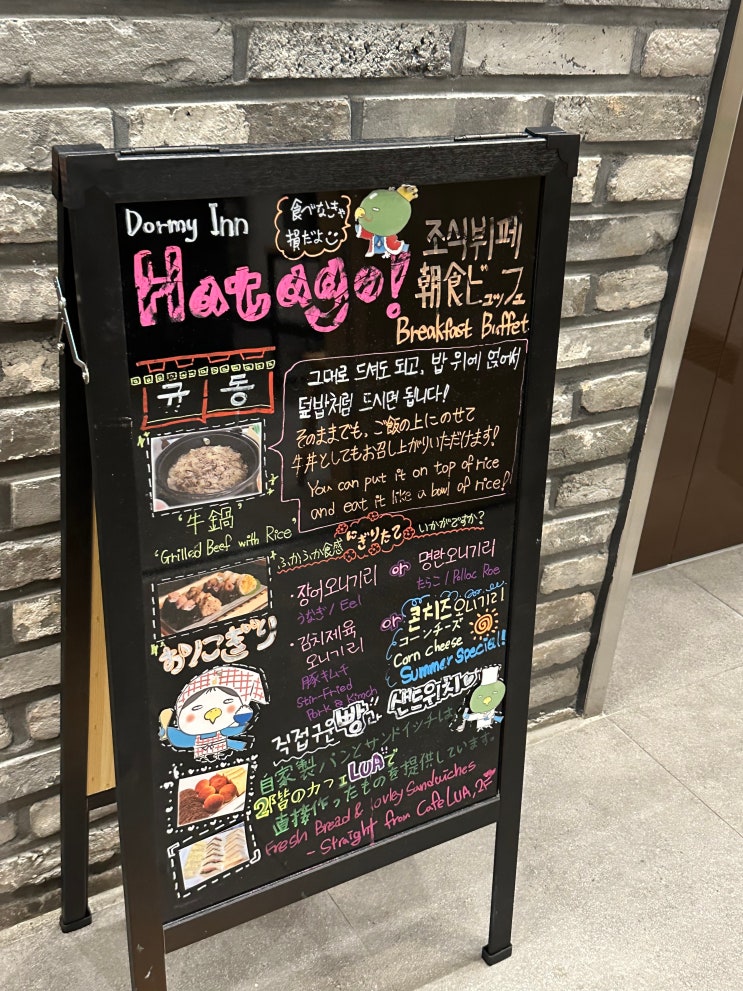 Dormy Inn
食べなきゃ
損だよ
Hatago!
조식뷔페
朝食ビュッフェ
Breakfast Buffet
규동
그대로 드셔도 되고, 밥 위에 얹어서
덮밥처럼 드시면 됩니다!
そのままでも、ご飯の上にのせて
牛丼としてもお召し上がりいただけます!
You can put it on top of rice
and eat it like a bowl of rice!
'牛鍋'
'Grilled Beef with Rice'
ふかふか食感 にぎりたて いかがですか?
おりこぎり
・장어오니기리 or 명란오니기리
うなぎ / Eel
たらこ / Polloc Roe
・김치제육
오니기리
or 콘치즈오니기리
豚キムチ
コーンチーズ
Stir-Fried
Pork & Kimch
Corn cheese
Summer Special!
직접구운빵과 샌드위치
自家製パンとサンドイッチは、
2階のカフェLUAで
直接作ったものを提供しています。
Fresh Bread & lovley Sandwiches
- Straight from Cafe LUA, 2F